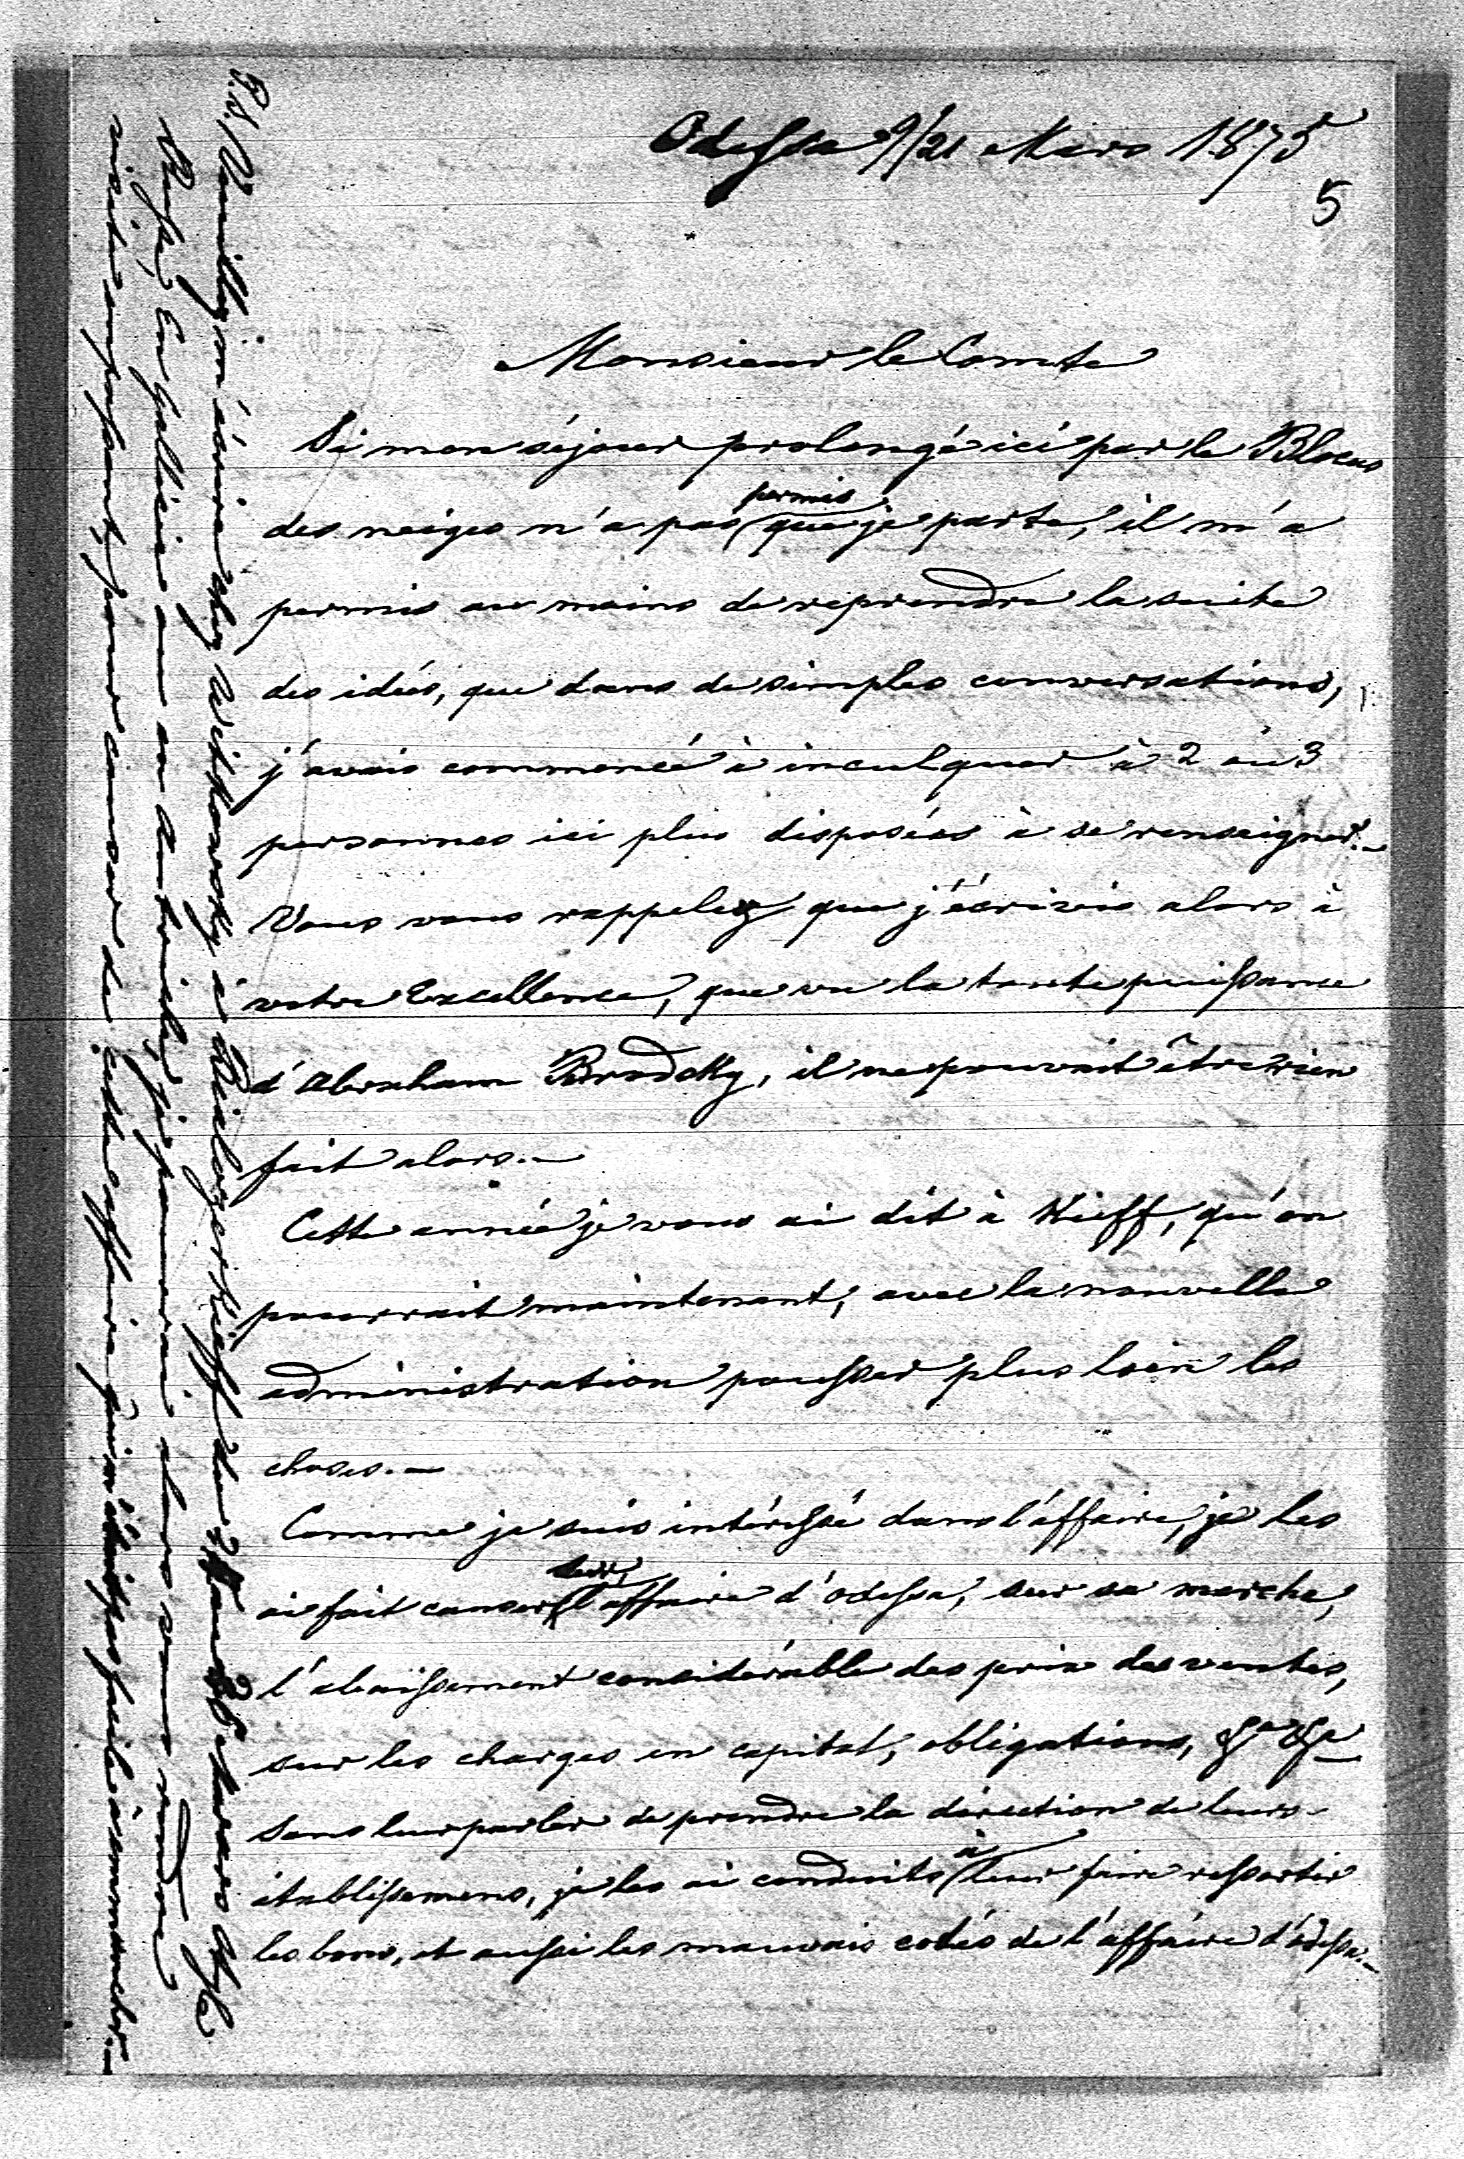 Odessa 9/21 Mars 1875
5
Monsieur le Comte
Si mon séjour prolongé ici par le Blocus
des neiges n'a pas permis que je parte, il m'a
permis au moins de reprendre la suite
des idées, que dans de simples conversations,
j'avais commencé à inculquer à 2 où 3
personnes ici plus disposées à se renseigner.—
Vous vous rappelez que j'écrivis alors à
votre Excellence, que vu la toute puissance
d'Abraham Brodsky, il ne pouvait être rien
fait alors.—
Cette année je vous ai dit à Kieff, qu'on
pourrait maintenant, avec la nouvelle
administration pousser plus loin les
choses.—
Comme je suis intéressé dans l'affaire, je les
ai fait causer sur l'affaire d'Odessa, sur sa marche,
l'abaissement considérable des prix des ventes,
sur les charges en capital, obligations, &a &a
sans leur parler de prendre la direction de leurs
établissemens, je les ai conduits à leur faire ressortir
les bons, et aussi les mauvais cotés de l'affaire d'Odessa.—
P.S./ Veuillez m'écrire chez Witkowsky à Kieff
Russe, En Gallicie ou en Autriche, je pourrai alors vous rendre
visite enfant pour causer de cette affaire